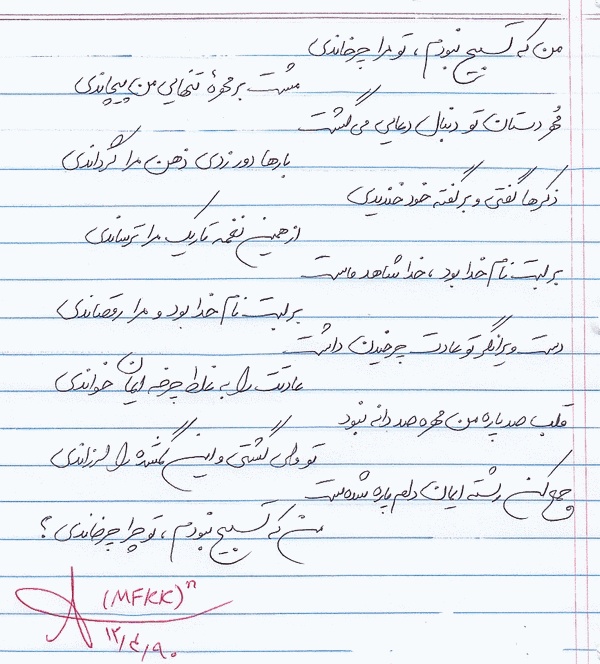 من که تسبیح نبودم ، تو مرا چرخاندی
مشت بر مهرهٔ تنهایی من پیچاندی
مهر دستان تو دنبال دعایی می گشت
بارها دور زدی ذهن مرا گرداندی
ذکرها گفتی و بر گفته خود خندیدی
از همین نغمه تاریک مرا ترساندی
بر لبت نام خدا بود ، خدا شاهد ماست
بر لبت نام خدا بود و مرا رقصاندی
دست ویرانگر تو عادت چرخیدن داشت
عادتت را به غلط چرخه ایمان خواندی
قلب صد پاره من مهره صد دانه نبود
تو ولی گشتی و این گمشده را لرزاندی
جمع کن رشته ایمان دلم پاره شدست
من که تسبیح نبودم ، تو چرا چرخاندی ؟
(MFKK)ⁿ
۱۲/۴/۹۰